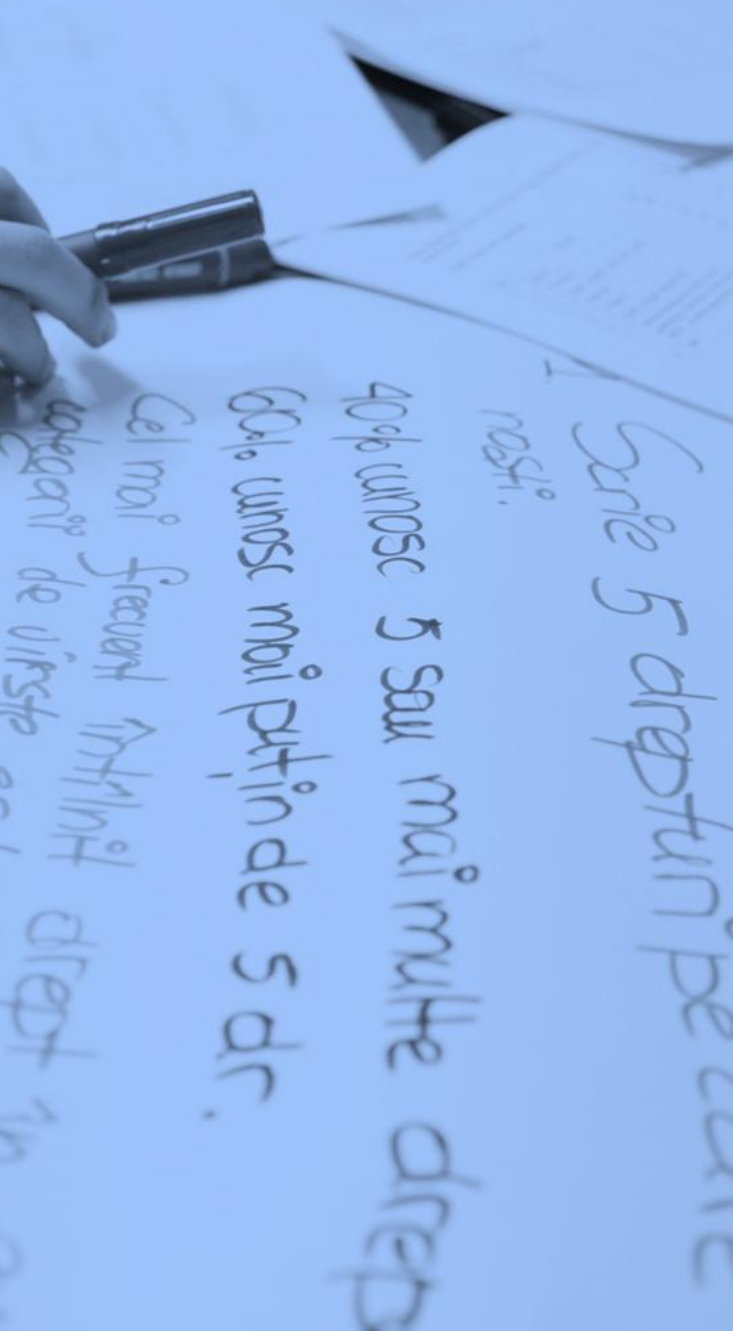 I Scrie 5 drepturi pe care
nosti.
40% cunosc 5 sau mai multe drep
60% cunosc mai puțin de 5 dr.
Cel mai frecvent întîlnit drept în
categorii de vîrste